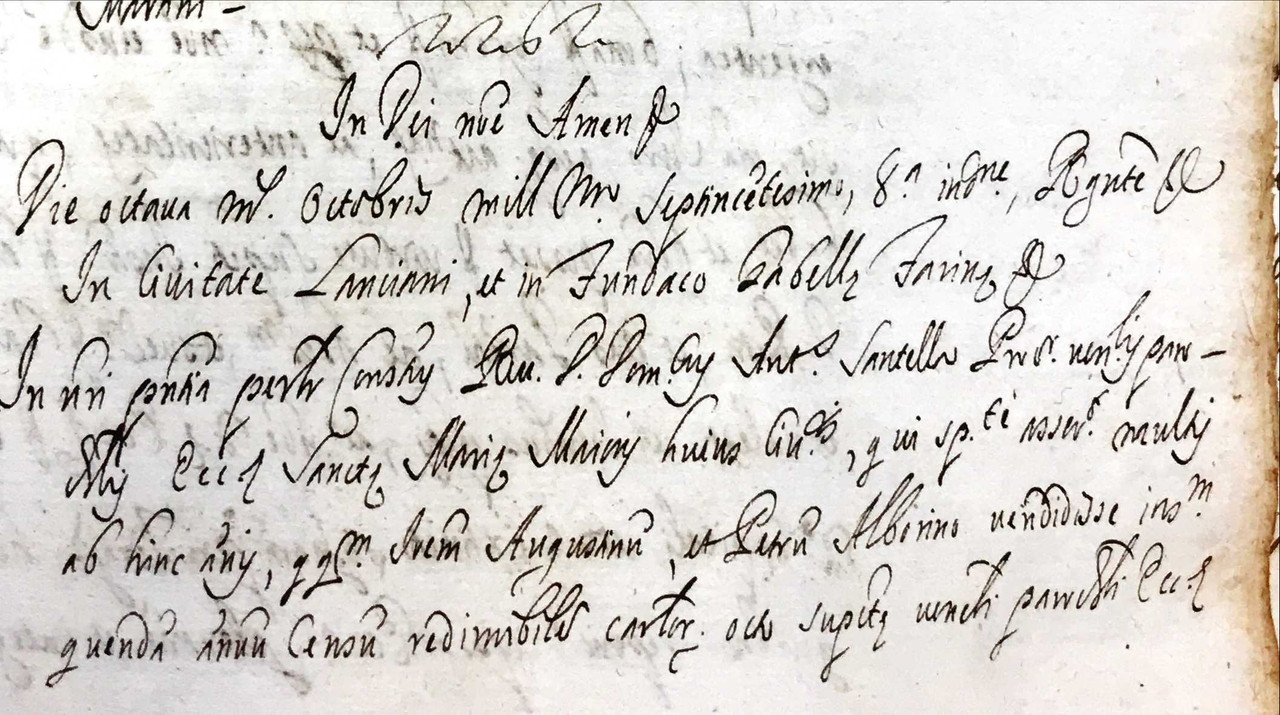 In Dei nõe Amen
Die octava m. Octobris mill mo septincẽtesimo, 8.a indne, Rgnte
In Civitate Lanciani, et in Fundaco Gabellę Farinę
In nri pñtia persr Constus Rev. D. Dom.cus Ant.s Santella Pror. ven.lis paro-
chlis Eccę Sanctę Marię Maioris huius Civ.is, qui sp.te asser.t multis
ab hinc ãnis, qqm. Ioem Augustinũ, et Petrũ Alborino vendidisse ins.m
quendã ãnuũ Censũ redimibilẽ carlor. octo supctę venli parrchli Eccę